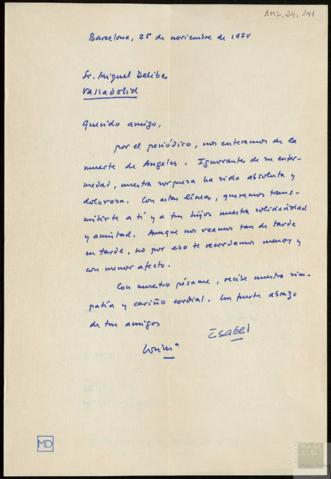 AMD, 24, 241
Barcelona, 25 de noviembre de 1974
Sr. Miguel Delibes
Valladolid
Querido amigo,
por el periódico, nos enteramos de la
muerte de Angeles. Ignorantes de su enfer-
medad, nuestra sorpresa ha sido absoluta y
dolorosa. Con estas líneas, queremos trans-
mitirte a tí y a tus hijos nuestra solidaridad
y amistad. Aunque nos veamos tan de tarde
en tarde, no por eso te recordamos menos y
con menor afecto.
Con nuestro pésame, recibe nuestra sim-
patía y cariño cordial. Un fuerte abrazo
de tus amigos
Esabel
MD